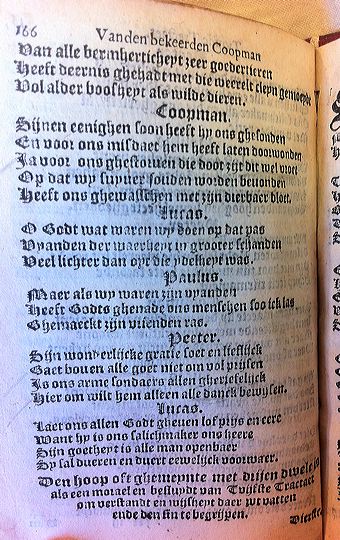 166 Vanden bekeerden Coopman
Van alle bermherticheyt zeer goedertieren
Heeft deernis ghehadt met die weerelt cleyn gemoeyt
Vol alder boosheyt als wilde dieren.
Coopman.
Sijnen eenighen soon heeft hy ons ghesonden
En voor ons misdaet hem heeft laten doorwonden
Ja voor ons ghestorven die doot zijt dit wel vroet
Op dat wy suyver souden worden bevonden
Heeft ons ghewasschen met zijn dierbaer bloet.
Lucas.
O Godt wat waren wy doen op dat pas
Vyanden der waerheyt in grooter schanden
Veel lichter dan oyt die ydelheyt was.
Paulus.
Maer als wy waren zijn vyanden
Heeft Godts ghenade ons menschen soo ick las
Ghemaeckt zijn vrienden ras.
Peeter.
Sijn wonderlijcke gratie soet en lieflijck
Gaet boven alle goet niet om vol prijsen
Is ons arme sondaers allen gheriefelijck
Hier om wilt hem alleen alle danck bewijsen.
Lucas.
Laet ons allen Godt gheven lof prijs en eere
Want hy is ons salichmaker ons heere
Sijn goetheyt is alle man openbaer
Sy sal dueren en duert eewelijck voorwaer.
Den hoop oft ghemeynte met drijen
als een moraelen besluyt van Tvijfste Tractaet
om verstandt en wijsheyt daer wt vatten
ende den sin te begrijpen.